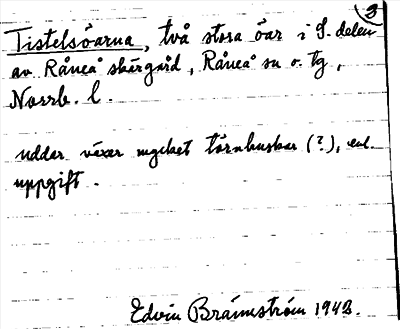 3
Tistelsöarna, två stora öar i S. delen
av Råneå skärgård, Råneå sn o. tg,
Norrb. l.
uddar växer mycket törnbuskar (?), enl.
uppgift.
Edvin Brännström 1943.